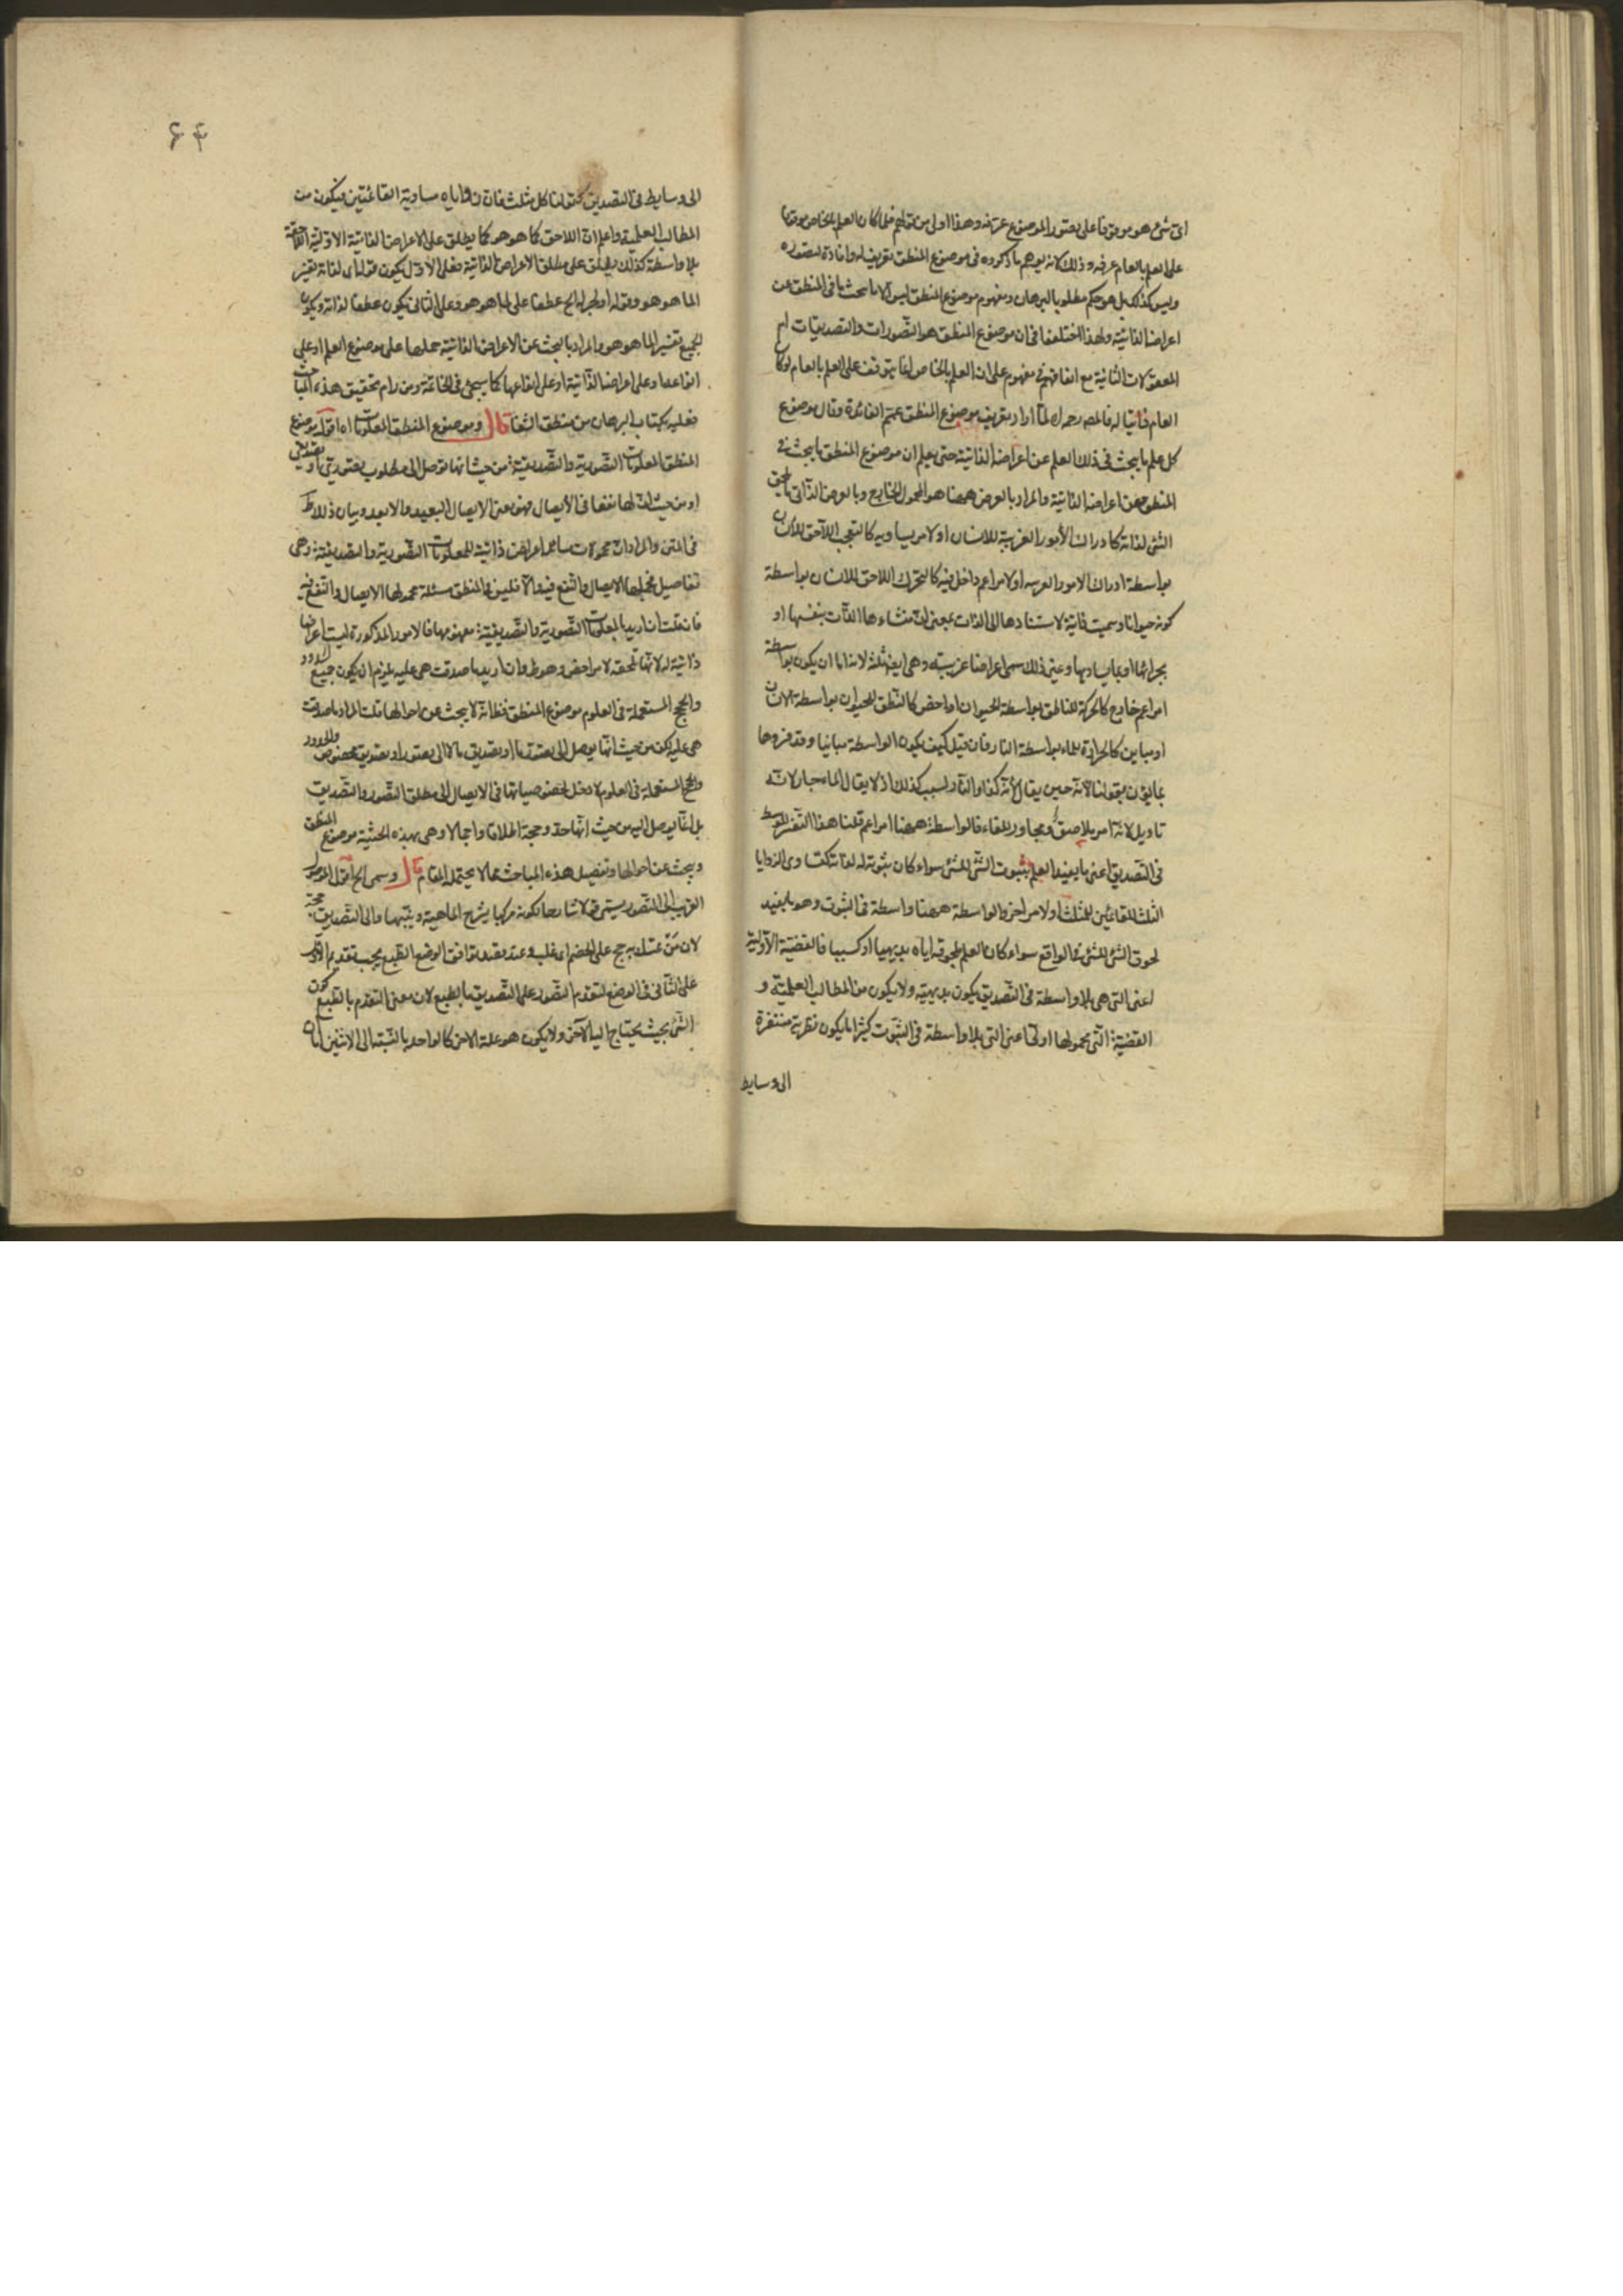 اى شئ هو موقوفا على تصور الموضوع عرفه وهذا اولى من قولهم فلما كان العلم بالخاص موقوفا
على العلم بالعام عرفه وذلك لانه يوهم ما ذكروه فى موضوع المنطق تعريف له وافادة لتصوره
وليس كذلك بل هو حكم مطلوب بالبرهان ومفهوم موضوع المنطق ليس الا ما يبحث فى المنطق عن
اعراضه الذاتية ولهذا اختلفوا فى ان موضوع المنطق هو التصورات والتصديقات ام
المعقولات الثانية مع اتفاقهم فى مفهومه على ان العلم بالخاص انما يتوقف على العلم بالعام لو كان
العام ذاتيا له فالمص رحمه الله لما اراد تعريف موضوع المنطق عمم الفائدة وقال موضوع
كل علم ما يبحث فى ذلك العلم عن اعراضه الذاتية حتى يعلم ان موضوع المنطق ما يبحث فى
المنطق عن اعراضه الذاتية والمراد بالعرض ههنا هو المحمول الخارج وبالعرض الذاتى ما يلحق
الشئ لذاته كادراك الأمور الغريبة للانسان او لامر يساويه كالتعجب اللاحق للانسان
بواسطة ادراك الامور الغريبه او لامر اعم داخل فيه كالتحرك اللاحق للانسان بواسطة
كونه حيوانا وسميت ذاتية لاستنادها الى الذات بمعنى ان منشاءها الذات بنفسها او
بجزائها او بما يساويها وغير ذلك سمى اعراضا غريبة وهى ايضا ثلثة لانه اما ان يكون بواسطة
امر اعم خارج كالحركة للناطق بواسطة الحيوان او اخص كالنطق للحيوان بواسطة الانسان
او مباين كالحرارة للماء بواسطة النار فان قيل كيف يكون الواسطة مباينا وقد فسروها
بما يقرن بقولنا لانه حين يقال لانه كذا والنار ليست كذلك اذ لا يقال الماء حار لانه
تاويل لانه امر ملاصق ومجاور للماء فالواسطة ههنا امر اعم قلنا هذا التفسير للوسط
فى التصديق اعنى ما يفيد العلم بثبوت الشئ للشئ سواء كان ثبوته له لذاته كتساوى الزوايا
الثلث للقائمتين للمثلث او لامر اخر والواسطة ههنا واسطة فى الثبوت وهو ما يفيد
لحوق الشئ للشئ فى الواقع سواء كان العلم بلحوقه اياه بديهيا او كسبيا فالقضية الأولية
اعنى التى هى بلا واسطة فى التصديق يكون بديهية ولا يكون من المطالب العلمية و
القضية التى محمولها اولى اعنى التى بلا واسطة فى الثبوت كثيرا ما يكون نظرية مفتقرة
الى وسايط
۶۴
الى وسايط فى التصديق كقولنا كل مثلث فان زواياه مساوية القائمتين فيكون من
المطالب العلمية واعلم ان اللاحق كما هو هو كما يطلق على الاعراض الذاتية الاولية اللاحقة
بلا واسطة كذلك يطلق على مطلق الاعراض الذاتية فعلى الأول يكون قوله اى لذاته تفسير
لما هو هو وقوله او لجزئه الخ عطفا على لما هو هو وعلى الثانى يكون عطفا لذاته ويكون
الجميع تفسير لما هو هو والمراد بالبحث عن الاعراض الذاتية حملها على موضوع العلم او على
انواعه او على اعراضه الذاتية او على انواعها كما سيجئ فى الخاتمة ومن رام تحقيق هذه المباحث
فعليه بكتاب البرهان من منطق الشفا قال وموضوع المنطق المعلومات اه اقول موضوع
المنطق المعلومات التصورية والتصديقية من حيث انها توصل الى مطلوب تصورى او تصديقى
او من حيث ان لها نفعا فى الأيصال فهو معنى الايصال البعيد والابعد وبيان ذلك
فى المتن والمراد ان محمولات مسائله اعراض ذاتية للمعلومات التصورية والتصديقية وهى
تفاصيل مجملها الايصال والنفع فيه والا فليس فى المنطق مسئلة محمولها الايصال والنفع فيه
فان قلت ان اريد بالمعلومات التصورية والتصديقية مفهومها فالامور المذكورة ليست اعراضا
ذاتية له لانها تلحقه لامر اخص وهو ظ وان اريد ما صدقت هى عليه يلزم ان يكون جميع الحدود
والحجج المستعملة فى العلوم موضوع المنطق فظ انه لا يبحث عن احوالها قلت المراد ما صدقت
هى عليه لكن من حيث انها يوصل الى تصور ما او تصديق ما لا الى تصور او تصديق مخصوص والحدود
والحجج المستعملة فى العلوم لا دخل لخصوصياتها فى الايصال الى مطلق التصور والتصديق
بل انما يوصل اليه من حيث انها حد وحجة اطلاقا واجمالا وهى بهذه الحيثية موضوع المنطق
ويبحث عن احوالها وتفصيل هذه المباحث مما لا يحتمله المقام قال وسمى الخ اقول الموصل
القريب الى التصور يسمى قولا شارحا لكونه مركبا يشرح الماهية ويبينها والى التصديق حجة
لان من تمسك به حج على الخصم اى غلب وعند بعضهم توافق الوضع الطبع يجب تقديم الاول
على الثانى فى الوضع لتقدم التصور على التصديق بالطبع لان معنى التقدم بالطبع كون
الشئ بحيث يحتاج اليه الآخر ولا يكون هو علة للاخر كالواحد بالنسبة الى الاثنين